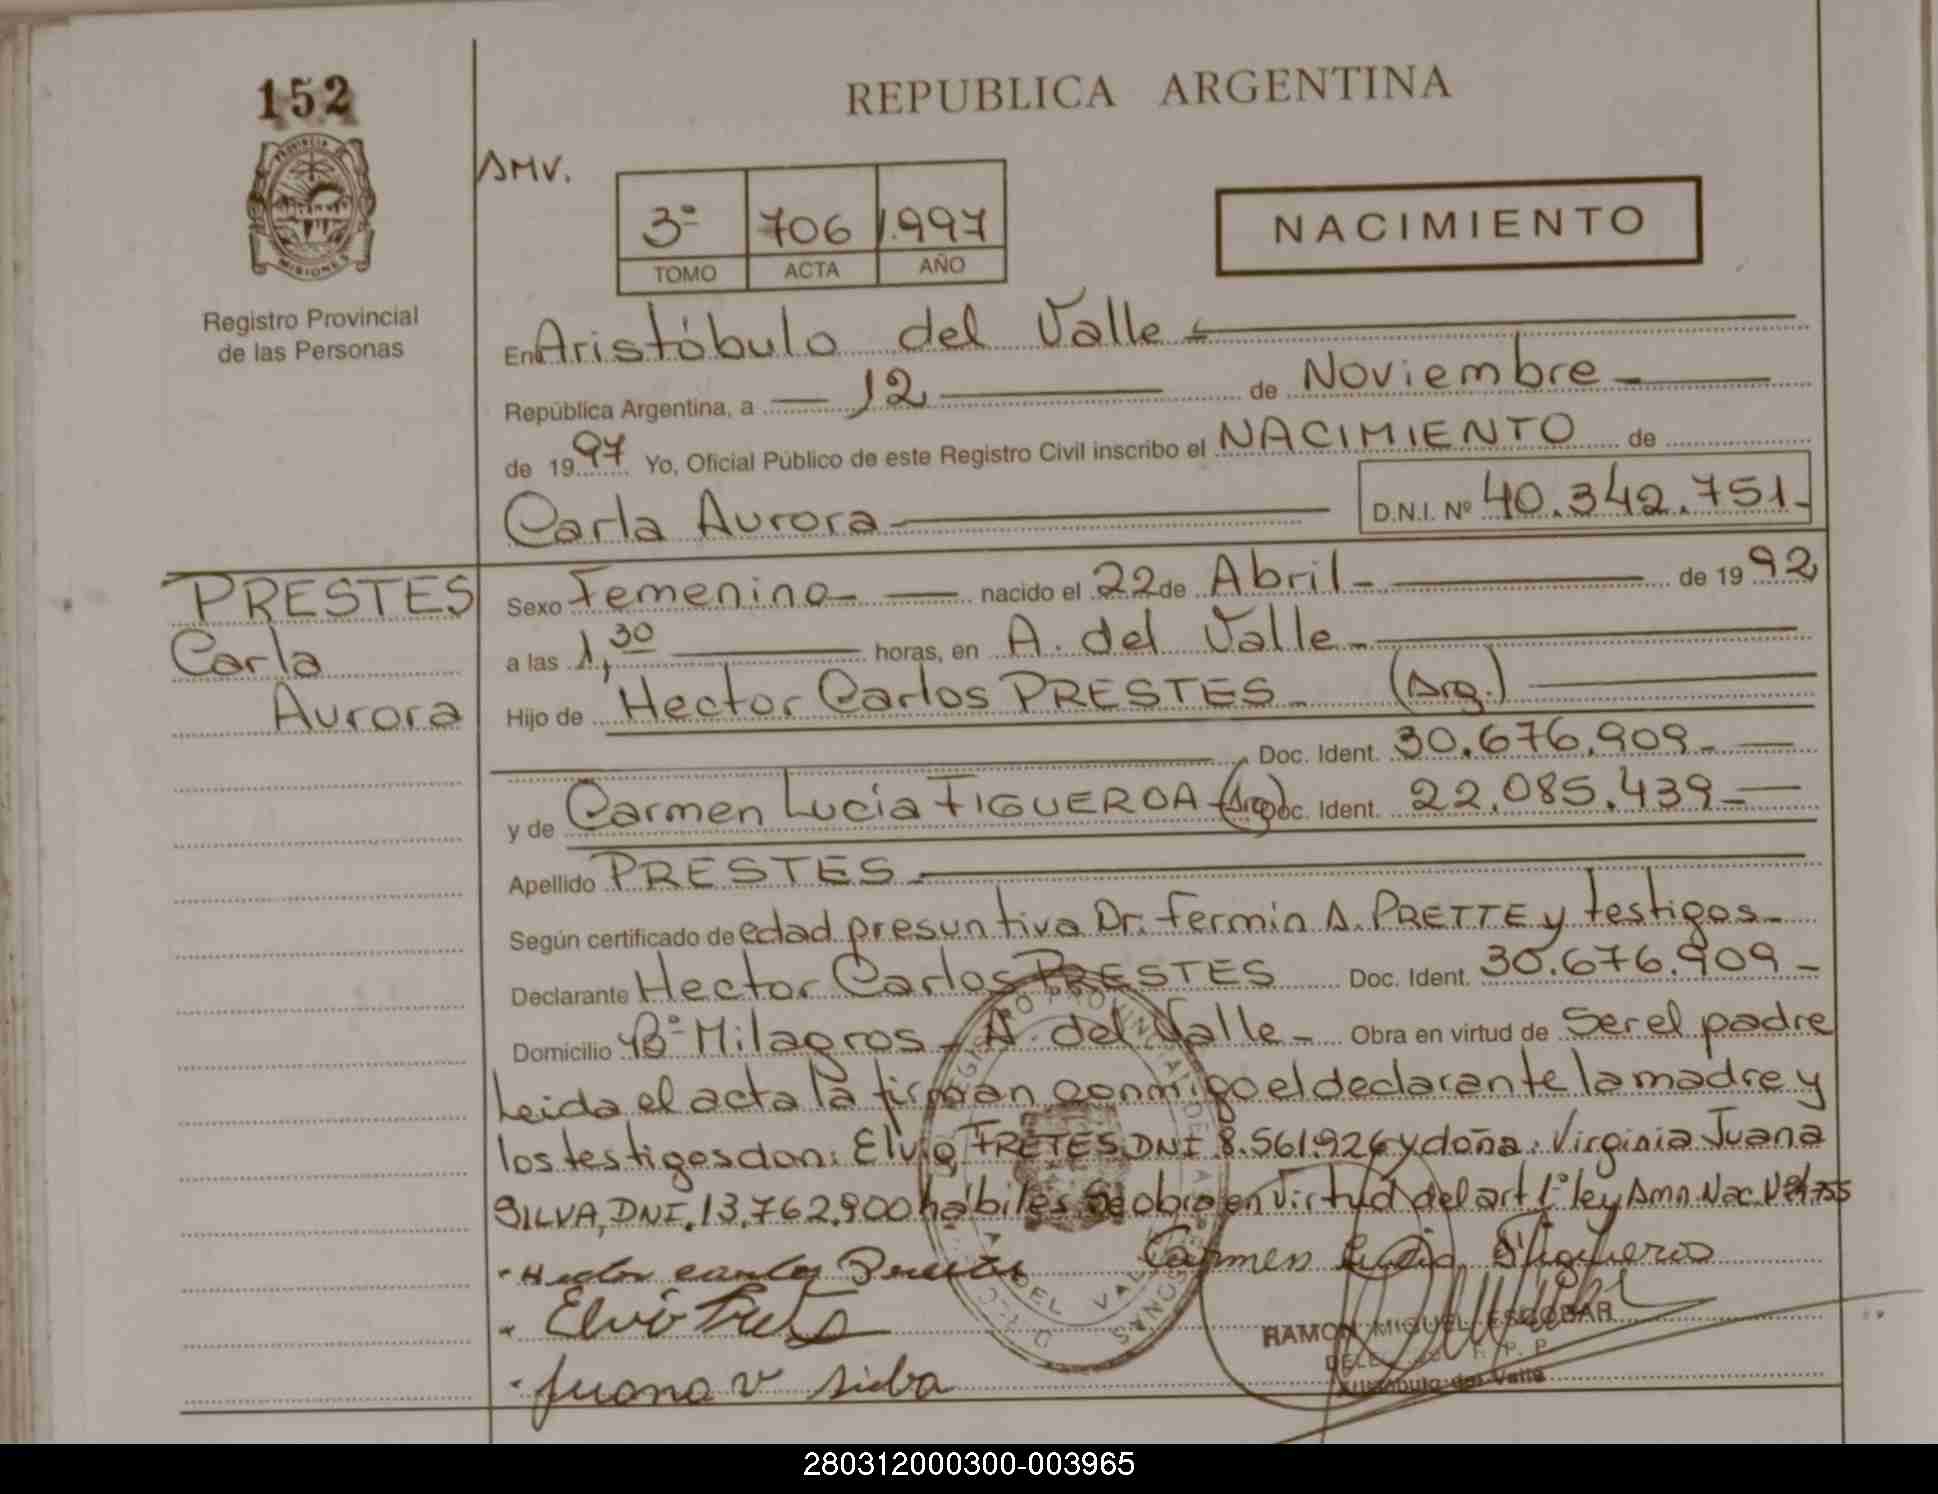 152
REPUBLICA ARGENTINA
PROVINCIA DE
MISIONES
Registro Provincial
de las Personas
AMV.
3º 706 1.997
TOMO ACTA AÑO
NACIMIENTO
En Aristóbulo del Valle
República Argentina, a 12 de Noviembre
de 1997 Yo, Oficial Público de este Registro Civil inscribo el NACIMIENTO de
Carla Aurora D.N.I. Nº 40.342.751
PRESTES
Carla
Aurora
Sexo Femenino nacido el 22 de Abril de 1992
a las 1,30 horas, en A. del Valle
Hijo de Hector Carlos PRESTES (Arg.)
Doc. Ident. 30.676.909
y de Carmen Lucia FIGUEROA (Arg) Doc. Ident. 22.085.439
Apellido PRESTES
Según certificado de edad presuntiva Dr. Fermin A. PRETTE y testigos
Declarante Hector Carlos PRESTES Doc. Ident. 30.676.909
Domicilio Bº Milagros A. del Valle Obra en virtud de Ser el padre
Leida el acta la firman conmigo el declarante la madre y
los testigos don: Elvio FRETES DNI 8.561.926 y doña: Virginia Juana
SILVA, DNI. 13.762.900 hábiles Se obra en virtud del art 1º ley Amn. Nac.
Hector carlos Prestes Carmen Lucia Figueroa
Elvio Fretes
RAMON MIGUEL ESCOBAR
Juana V Silva
Aristobulo del Valle
280312000300-003965